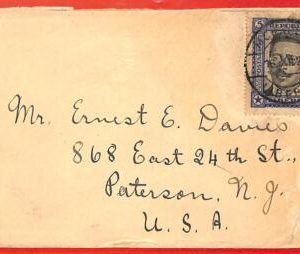 5
REPUBLIC
Mr. Ernest E. Davies
868 East 24th St.,
Paterson, N. J.
U. S. A.